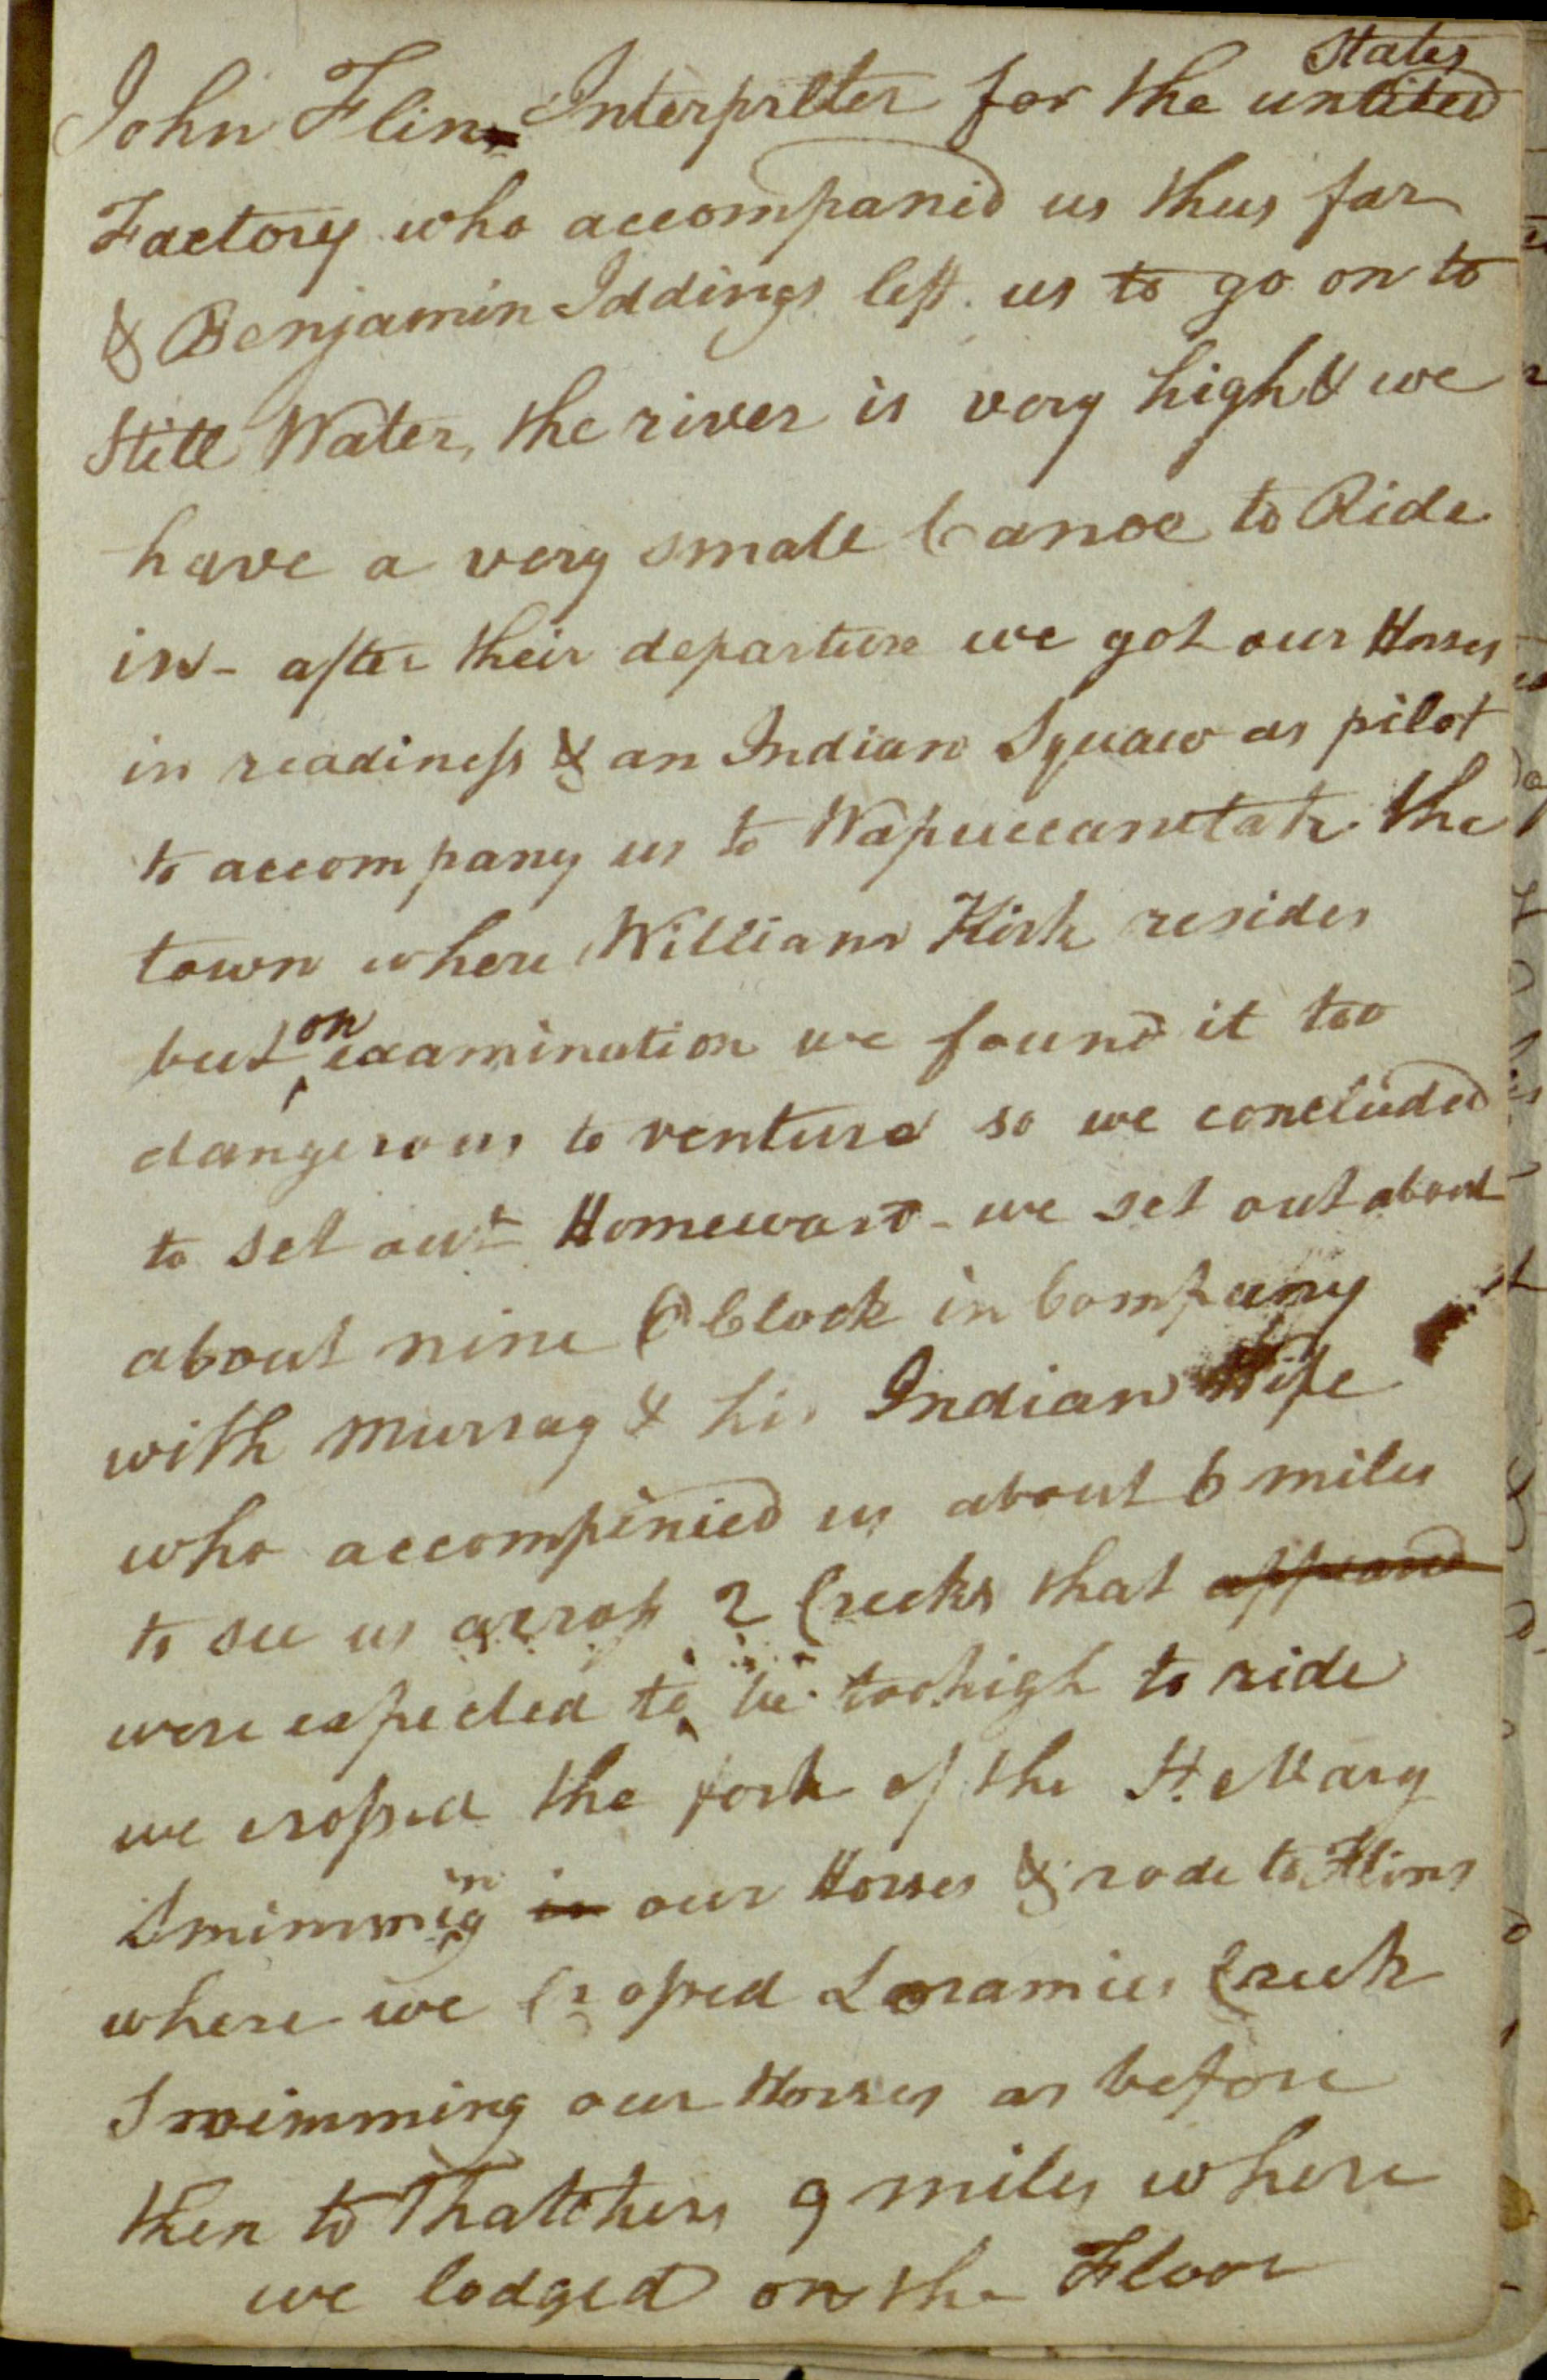 John Flinn Interpretter for the united States
Factory who accompanied us thus far
& Benjamin Iddings left us to go on to
Still Water, the river is very high & we
have a very small Canoe to Ride
in - after their departure we got our Horses
in readiness & an Indian Squaw as pilot
to accompany us to Wapuccanetah the
town where William Kirk resides
but on examination we found it too
dangerous to venture so we concluded
to set out Homeward - we set out about
about nine O Clock in Company
with Murray & his Indian Wife
who accompinied us about 6 miles
to see us across 2 Creeks that appeard
were expected to be too high to ride
we crossed the fork of the St. Mary
Swimming in our Horses & rode to Flins
where we Crossed Loramies Creek
Swimming our Horses as before
then to Thatchers 9 miles where
we lodged on the Floor